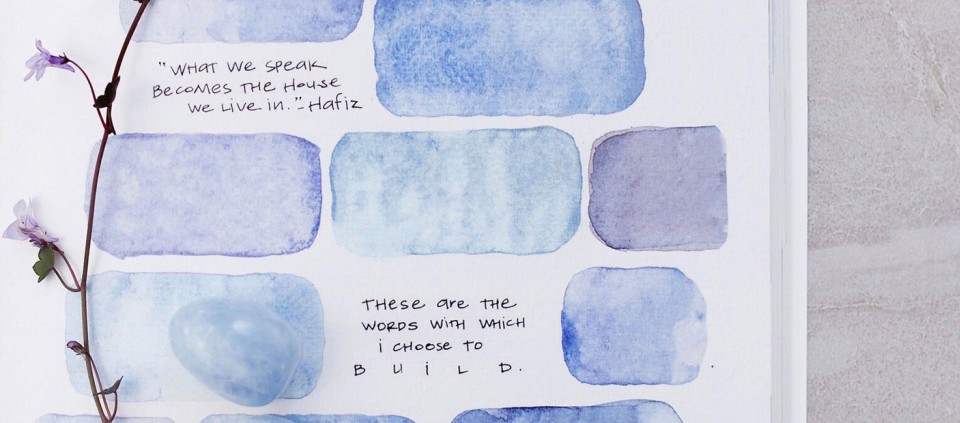 "WHAT WE SPEAK
BECOMES THE HOUSE
WE LIVE IN."-Hafiz
THESE are THE
WORDS WITH WHICH
i CHOOSE TO
B U i L D.